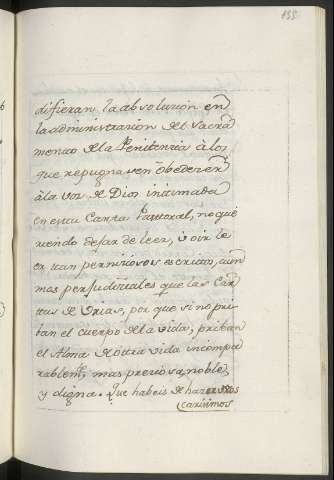 155
difieran la absolucion en
la administracion del Sacra
mento de la Penitencia â los
que repugnasen obedecer
â la voz de Dios intimada
en esta Carta Pastoral, no que
riendo dejar de leer, ò oir le
er tan perniciosos escritos, aun
mas perjudiciales que las Car
tas de Urias, porque si no pri
ban el cuerpo de la vida; priban
el Alma de otra vida incompa
rablem.te mas preciosa, noble,
y digna. Que habeis de hacer
carisimos